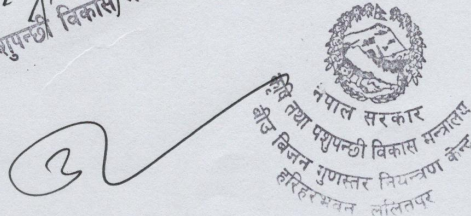 पशुपन्छी विकास
नेपाल सरकार
कृषि तथा पशुपन्छी विकास मन्त्रालय
बीउ बिजन गुणस्तर नियन्त्रण केन्द्र
हरिहरभवन ललितपुर